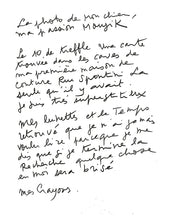 La photo de mon chien,
ma passion Moujik
Le 10 de treffle. Une carte
trouvée dans les caves de
ma première maison de
couture Rue Spontini. La
seule qu'il y avait.
je suis très superstitieux
Mes lunettes et le Temps
retrouvé que je n'ai jamais
voulu lire parceque je me
dis que si je termine la
Recherche quelque chose
en moi sera brisé
mes Crayons.